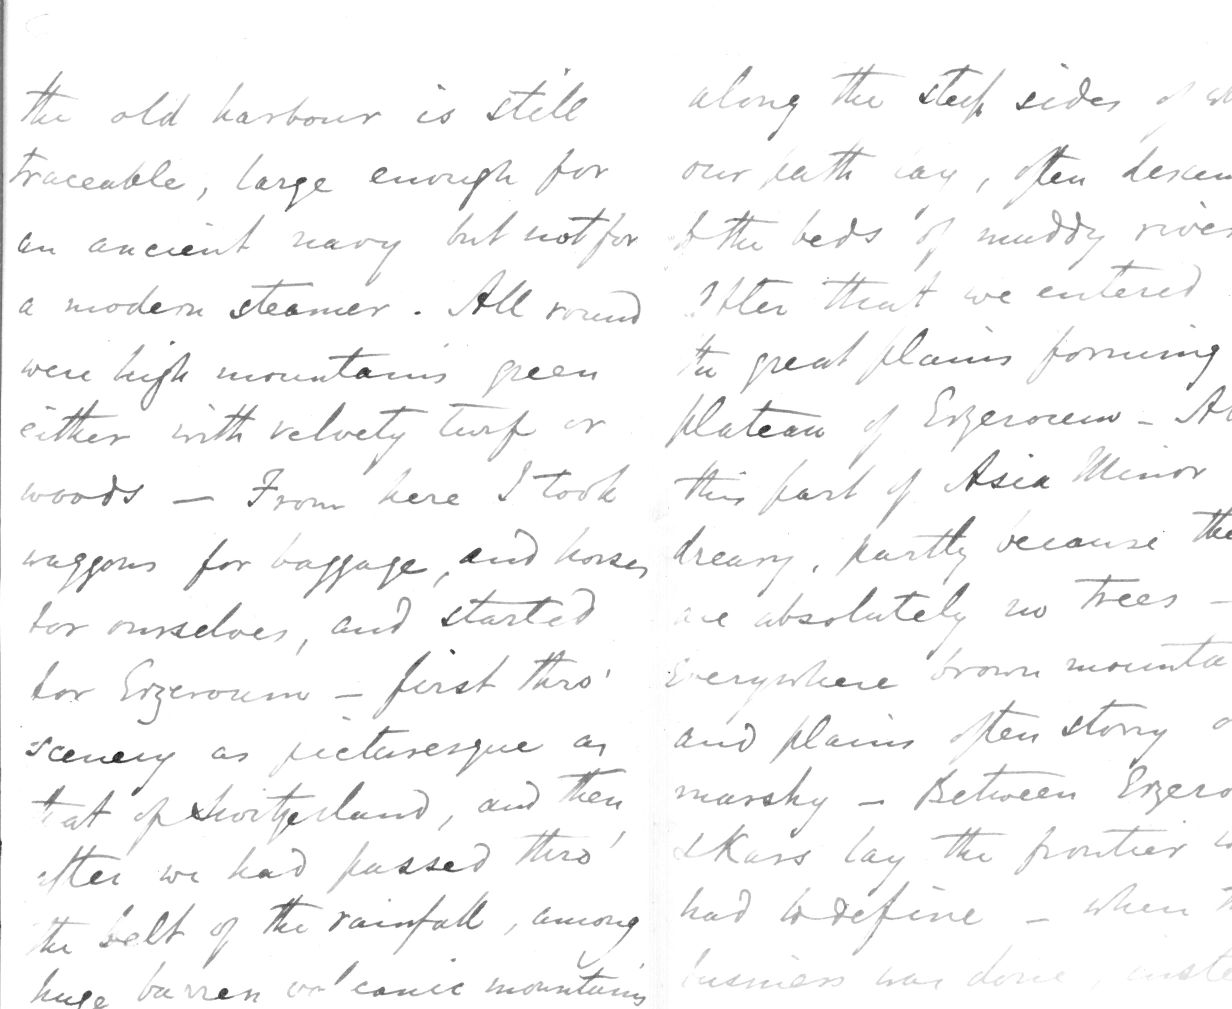 the old harbour is still
traceable, large enough for
an ancient navy but not for
a modern steamer. All round
were high mountains green
either with velvety turf or
woods — From here I took
waggons for baggage, and horses
for ourselves, and started
for Erzeroum — first thro'
scenery as picturesque as
that of Switzerland, and then
after we had passed thro'
the belt of the rainfall, among
huge barren volcanic mountains
along the steep sides of
our path lay, often
to the beds of muddy
After that we entered
the great plains forming
plateau of Erzeroum —
this part of Asia Minor
dreary, partly because
are absolutely no trees —
Everywhere brown
and plains often stony
marshy — Between
& Kars lay the frontier
had to define — when
business was done,